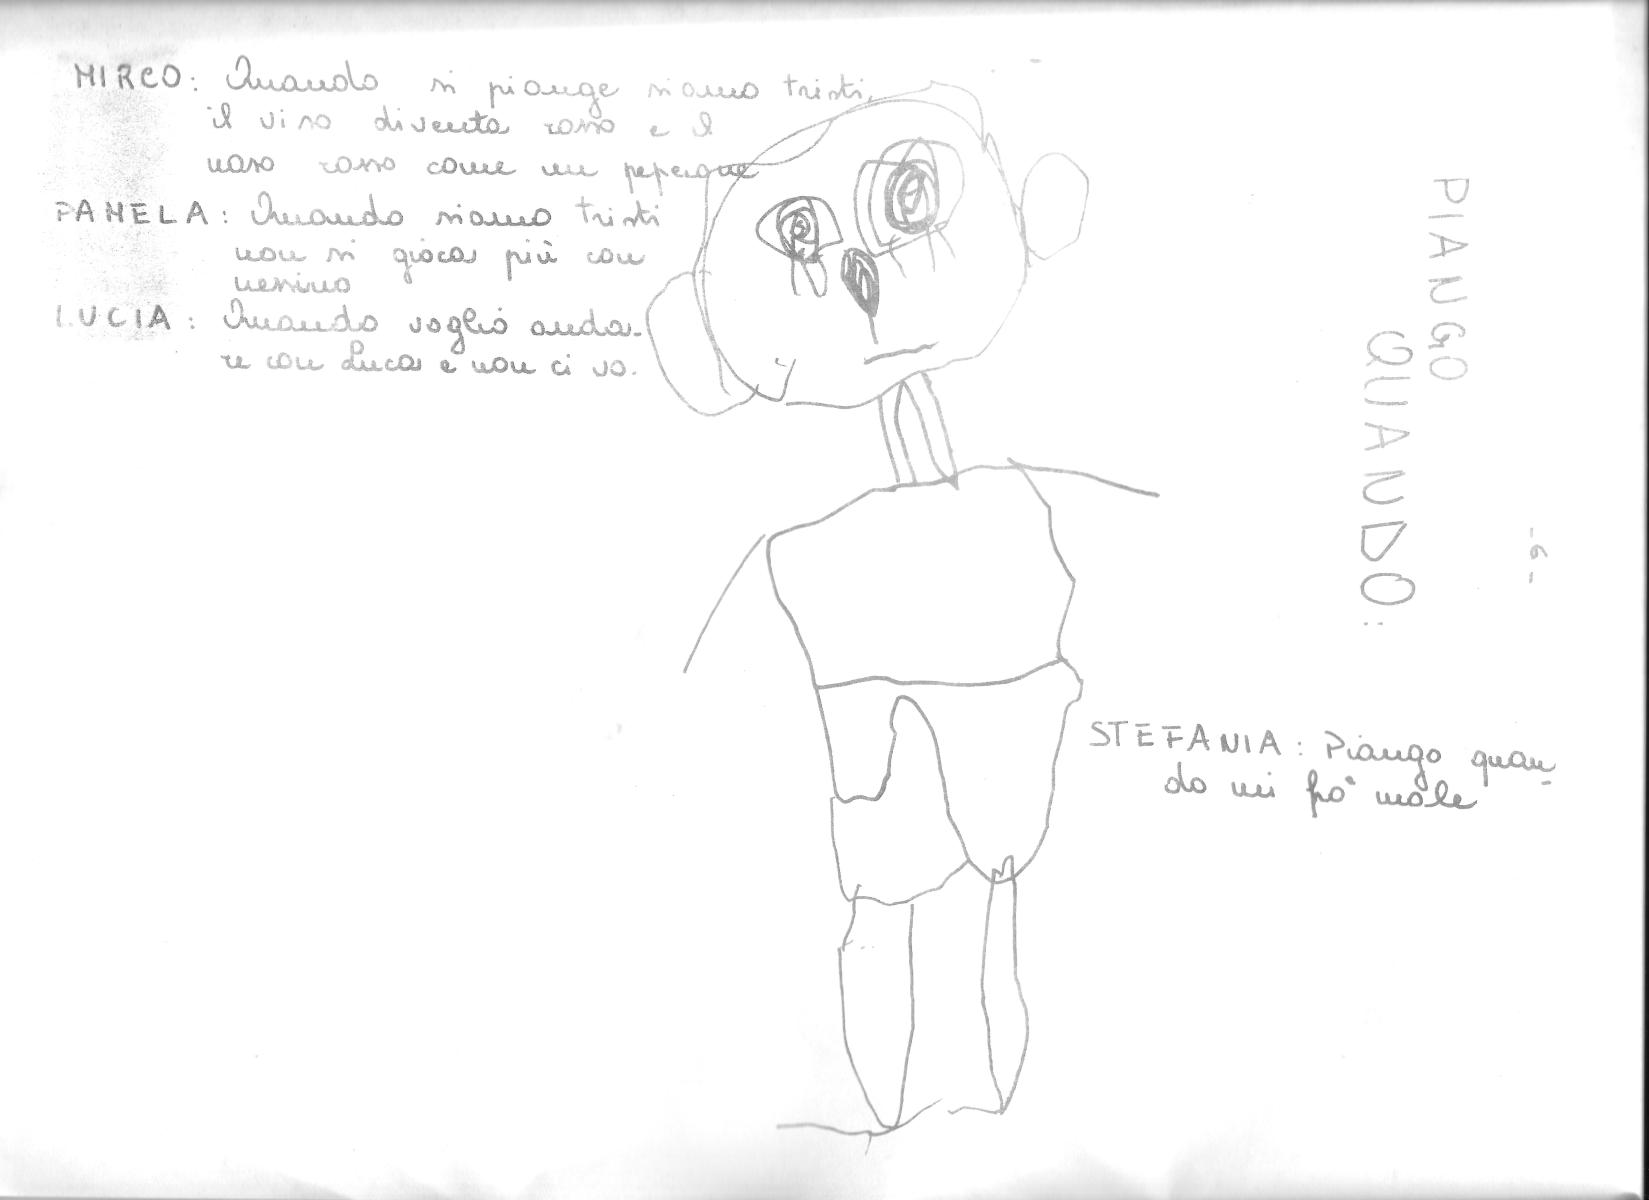 PIANGO
QUANDO:
-6-
MIRCO: Quando si piange siamo tristi,
il viso diventa rosso e il
naso rosso come un peperone
PAMELA: Quando siamo tristi
non si gioca più con
nessuno
LUCIA: Quando voglio anda-
re con Luca e non ci va.
STEFANIA: Piango quan-
do mi fà male